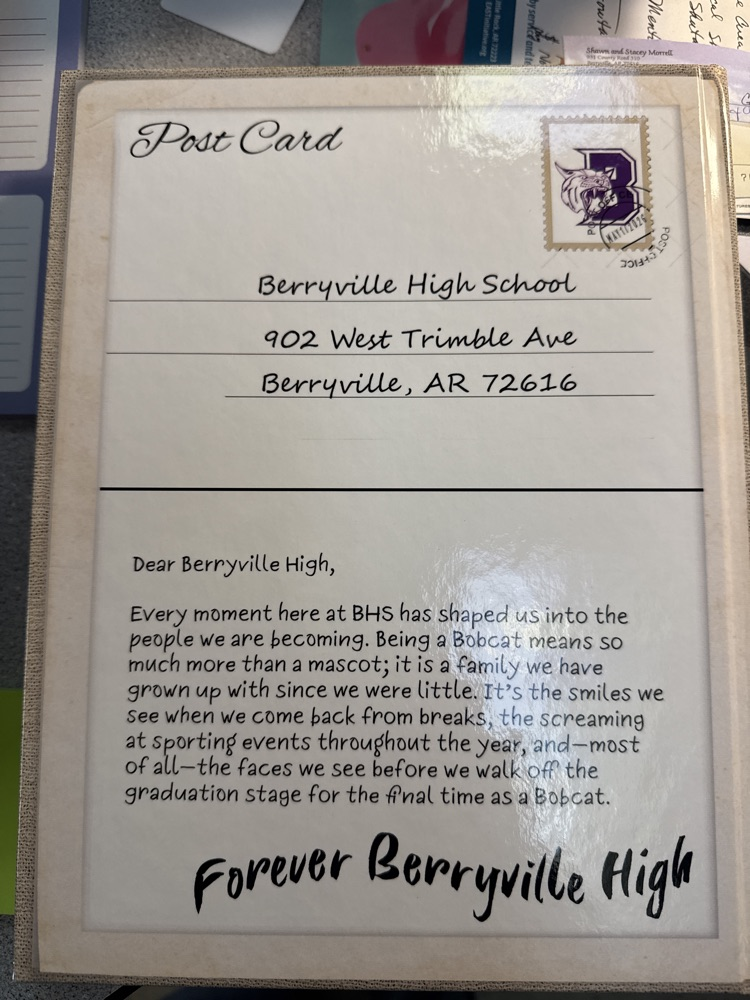 Little Rock, AR 72223
EASTinitiative.org
Shawn and Stacey Morrell
Post Card
B
POST OFFICE
Berryville High School
902 West Trimble Ave
Berryville, AR 72616
Dear Berryville High,
Every moment here at BHS has shaped us into the
people we are becoming. Being a Bobcat means so
much more than a mascot; it is a family we have
grown up with since we were little. It's the smiles we
see when we come back from breaks, the screaming
at sporting events throughout the year, and—most
of all—the faces we see before we walk off the
graduation stage for the final time as a Bobcat.
Forever Berryville High